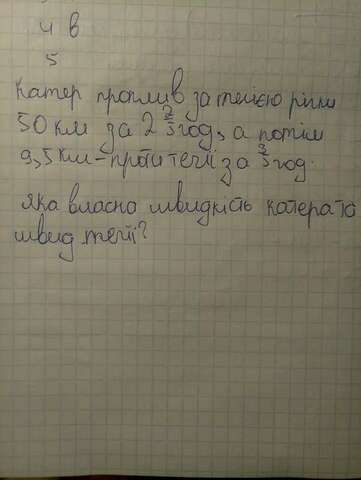 4 в
5
Катер проплив за течією річки
50 км за 2 2/5 год, а потім
9,5 км - проти течії за 3/5 год.
яка власно швидкість катера та
швид течії?